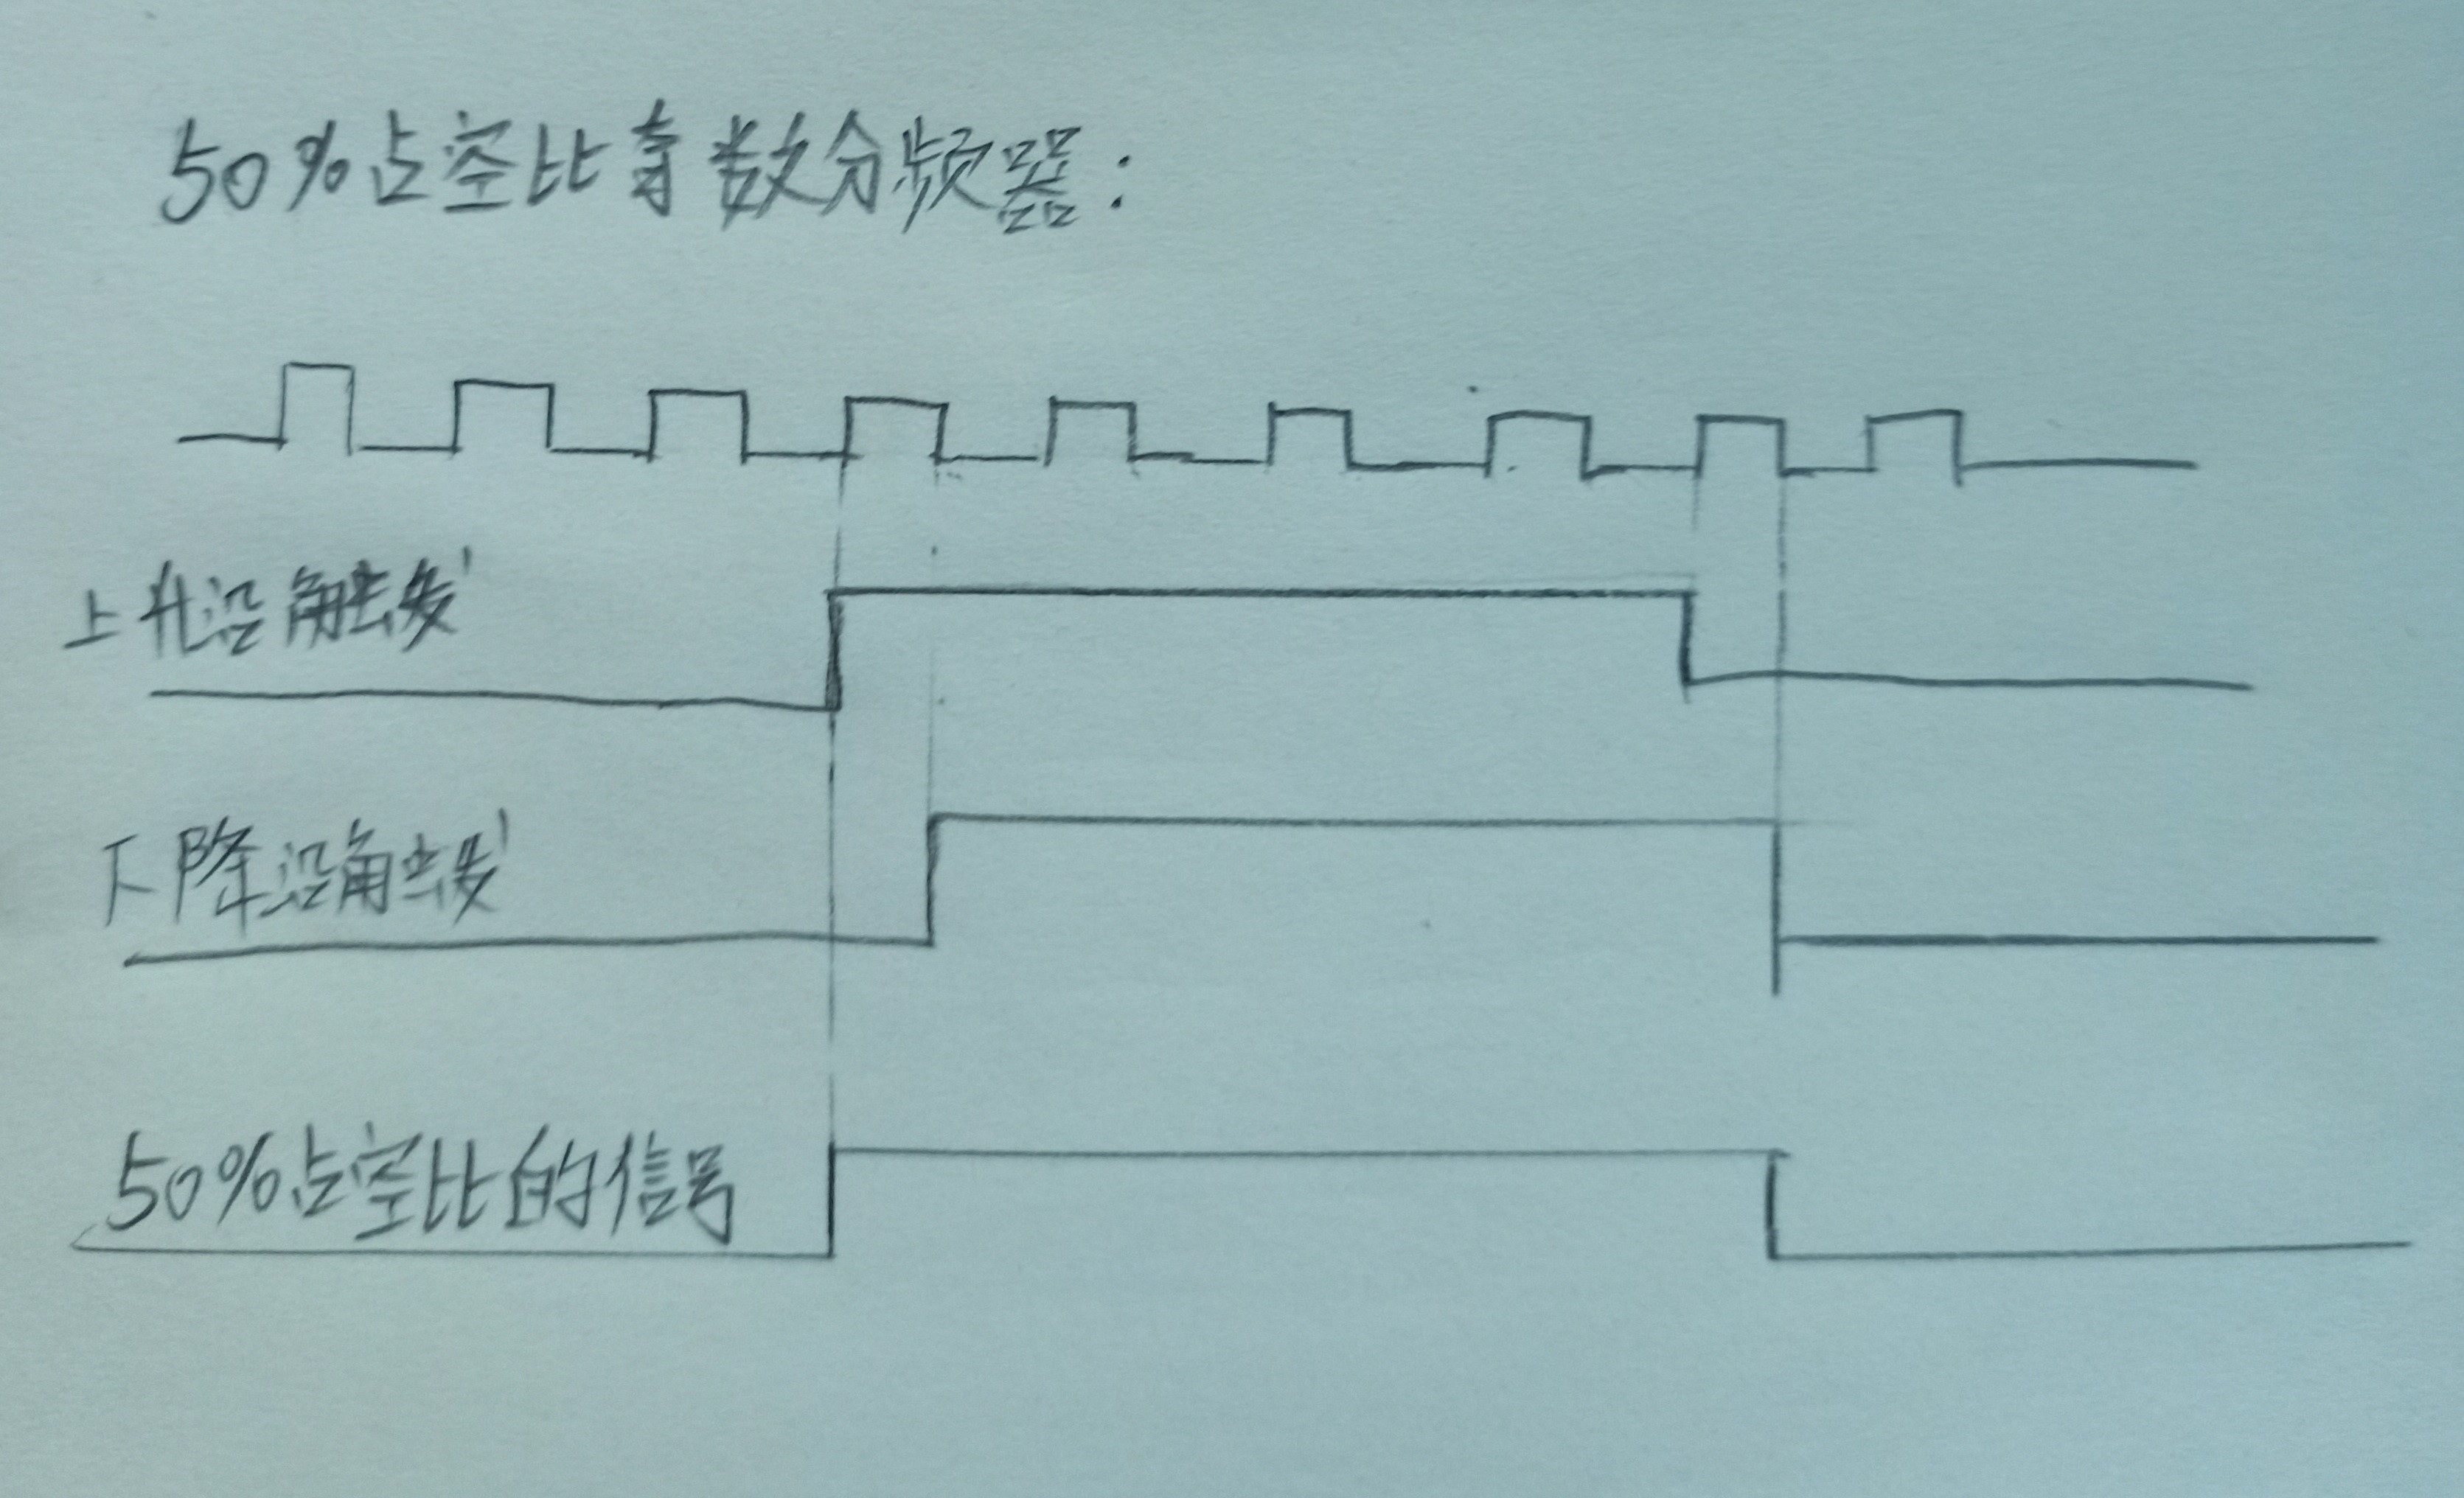 50%占空比奇数分频器:
上升沿触发
下降沿触发
50%占空比的信号